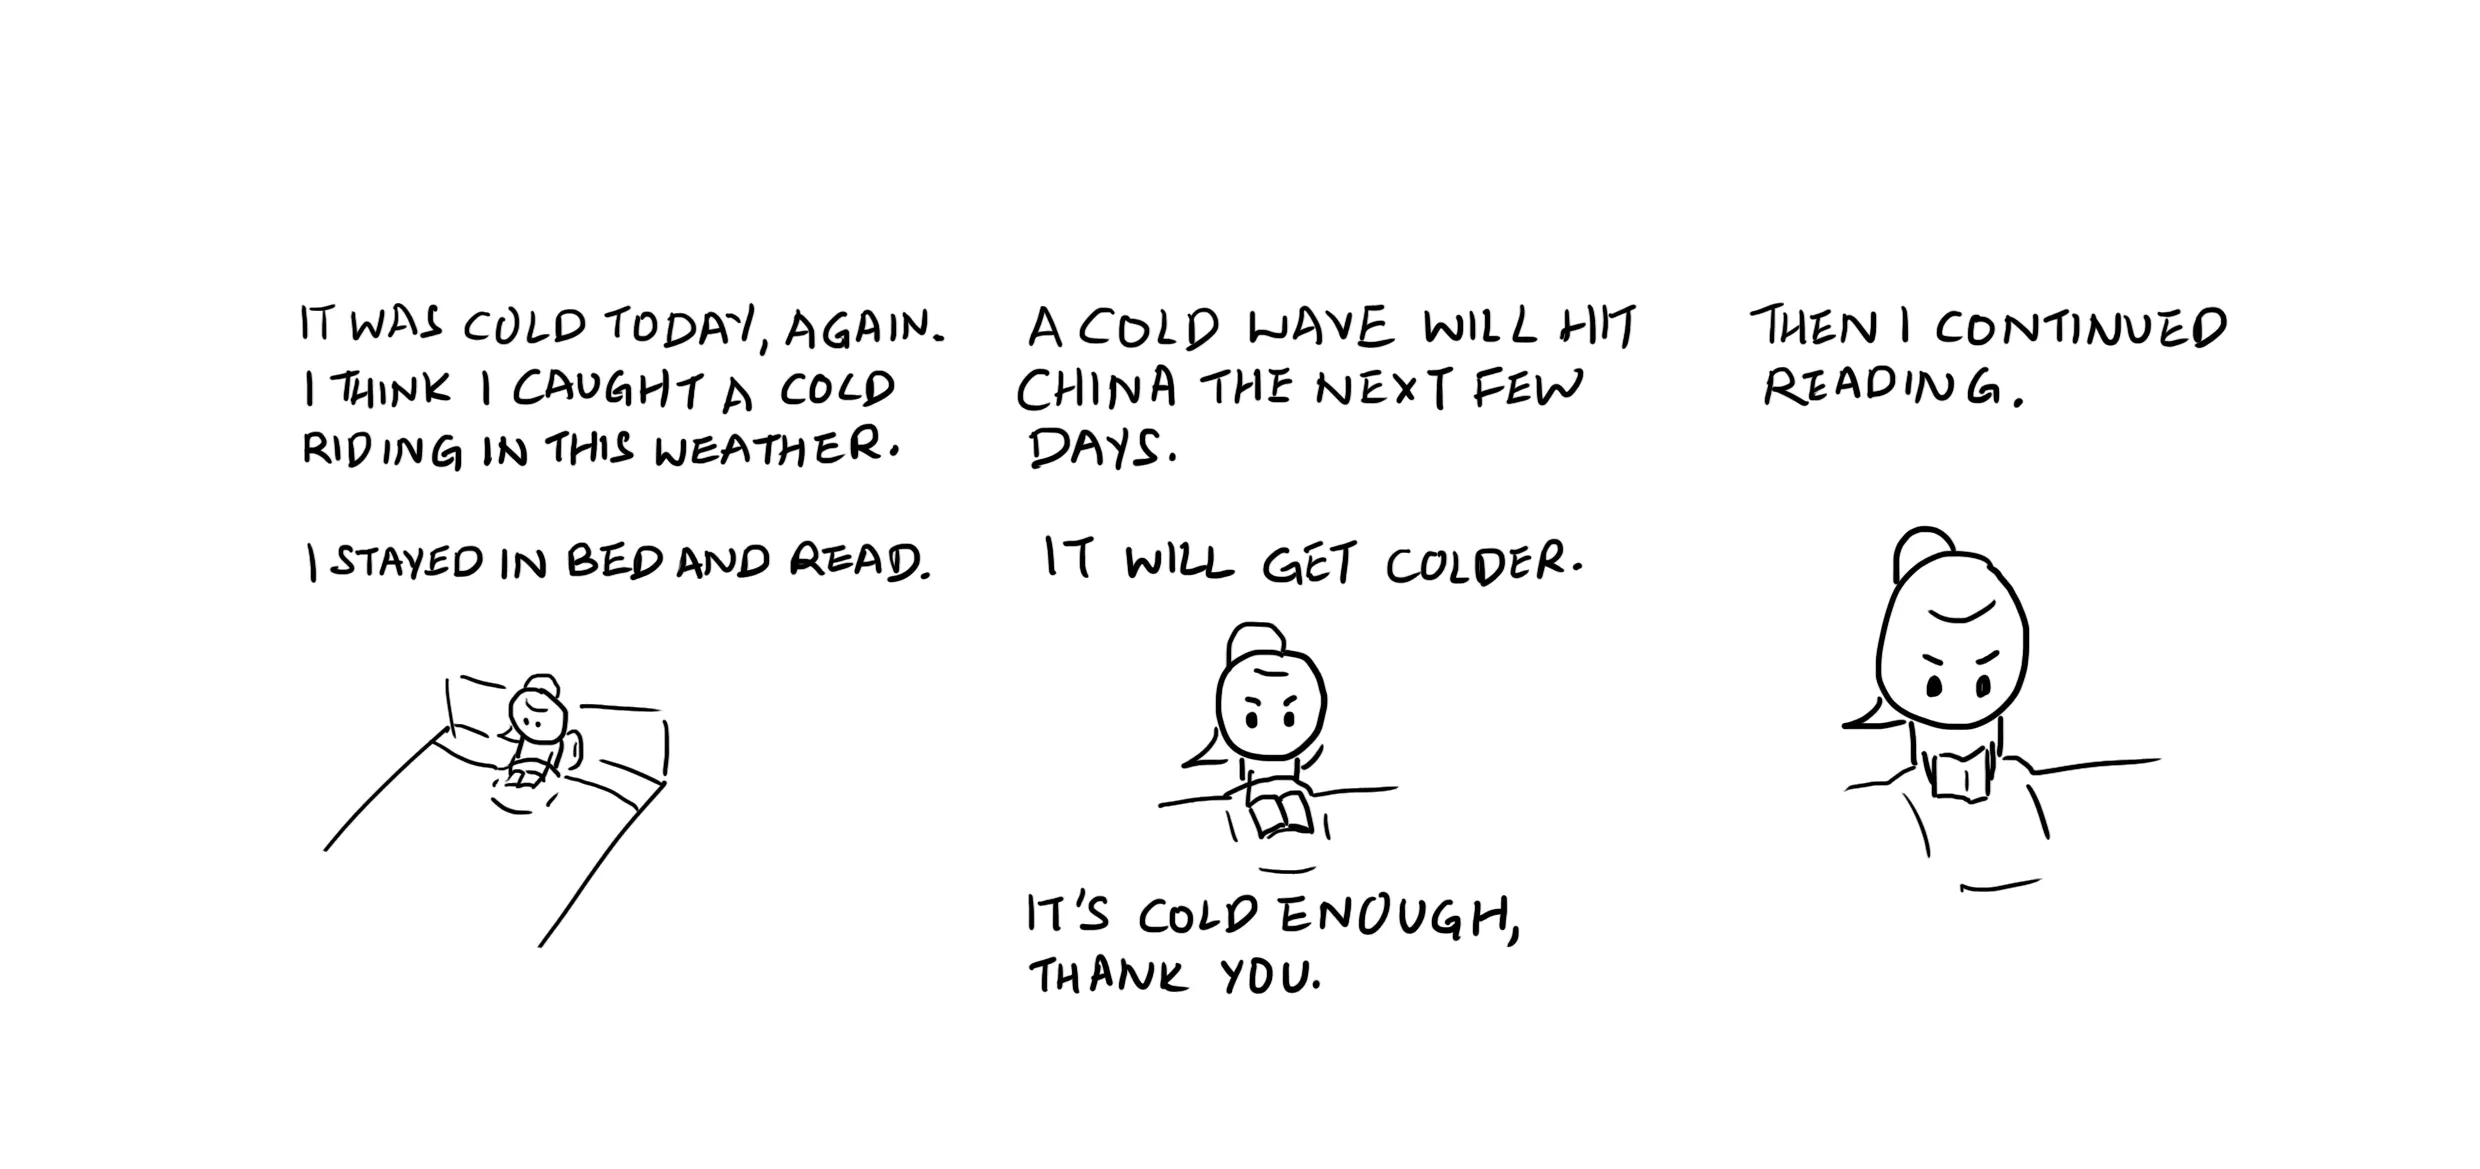 IT WAS COLD TODAY, AGAIN.
I THINK I CAUGHT A COLD
RIDING IN THIS WEATHER.
I STAYED IN BED AND READ.
A COLD WAVE WILL HIT
CHINA THE NEXT FEW
DAYS.
IT WILL GET COLDER.
IT'S COLD ENOUGH,
THANK YOU.
THEN I CONTINUED
READING.